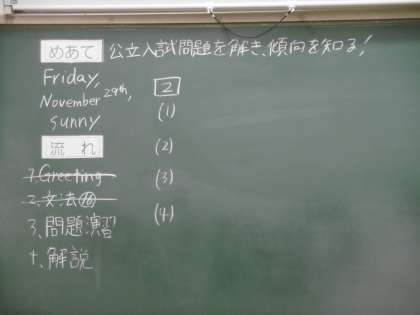 めあて 公立入試問題を解き、傾向を知る!
Friday,
November 29th,
sunny
流れ
1.Greeting
2.文法
3.問題演習
4.解説
2
(1)
(2)
(3)
(4)